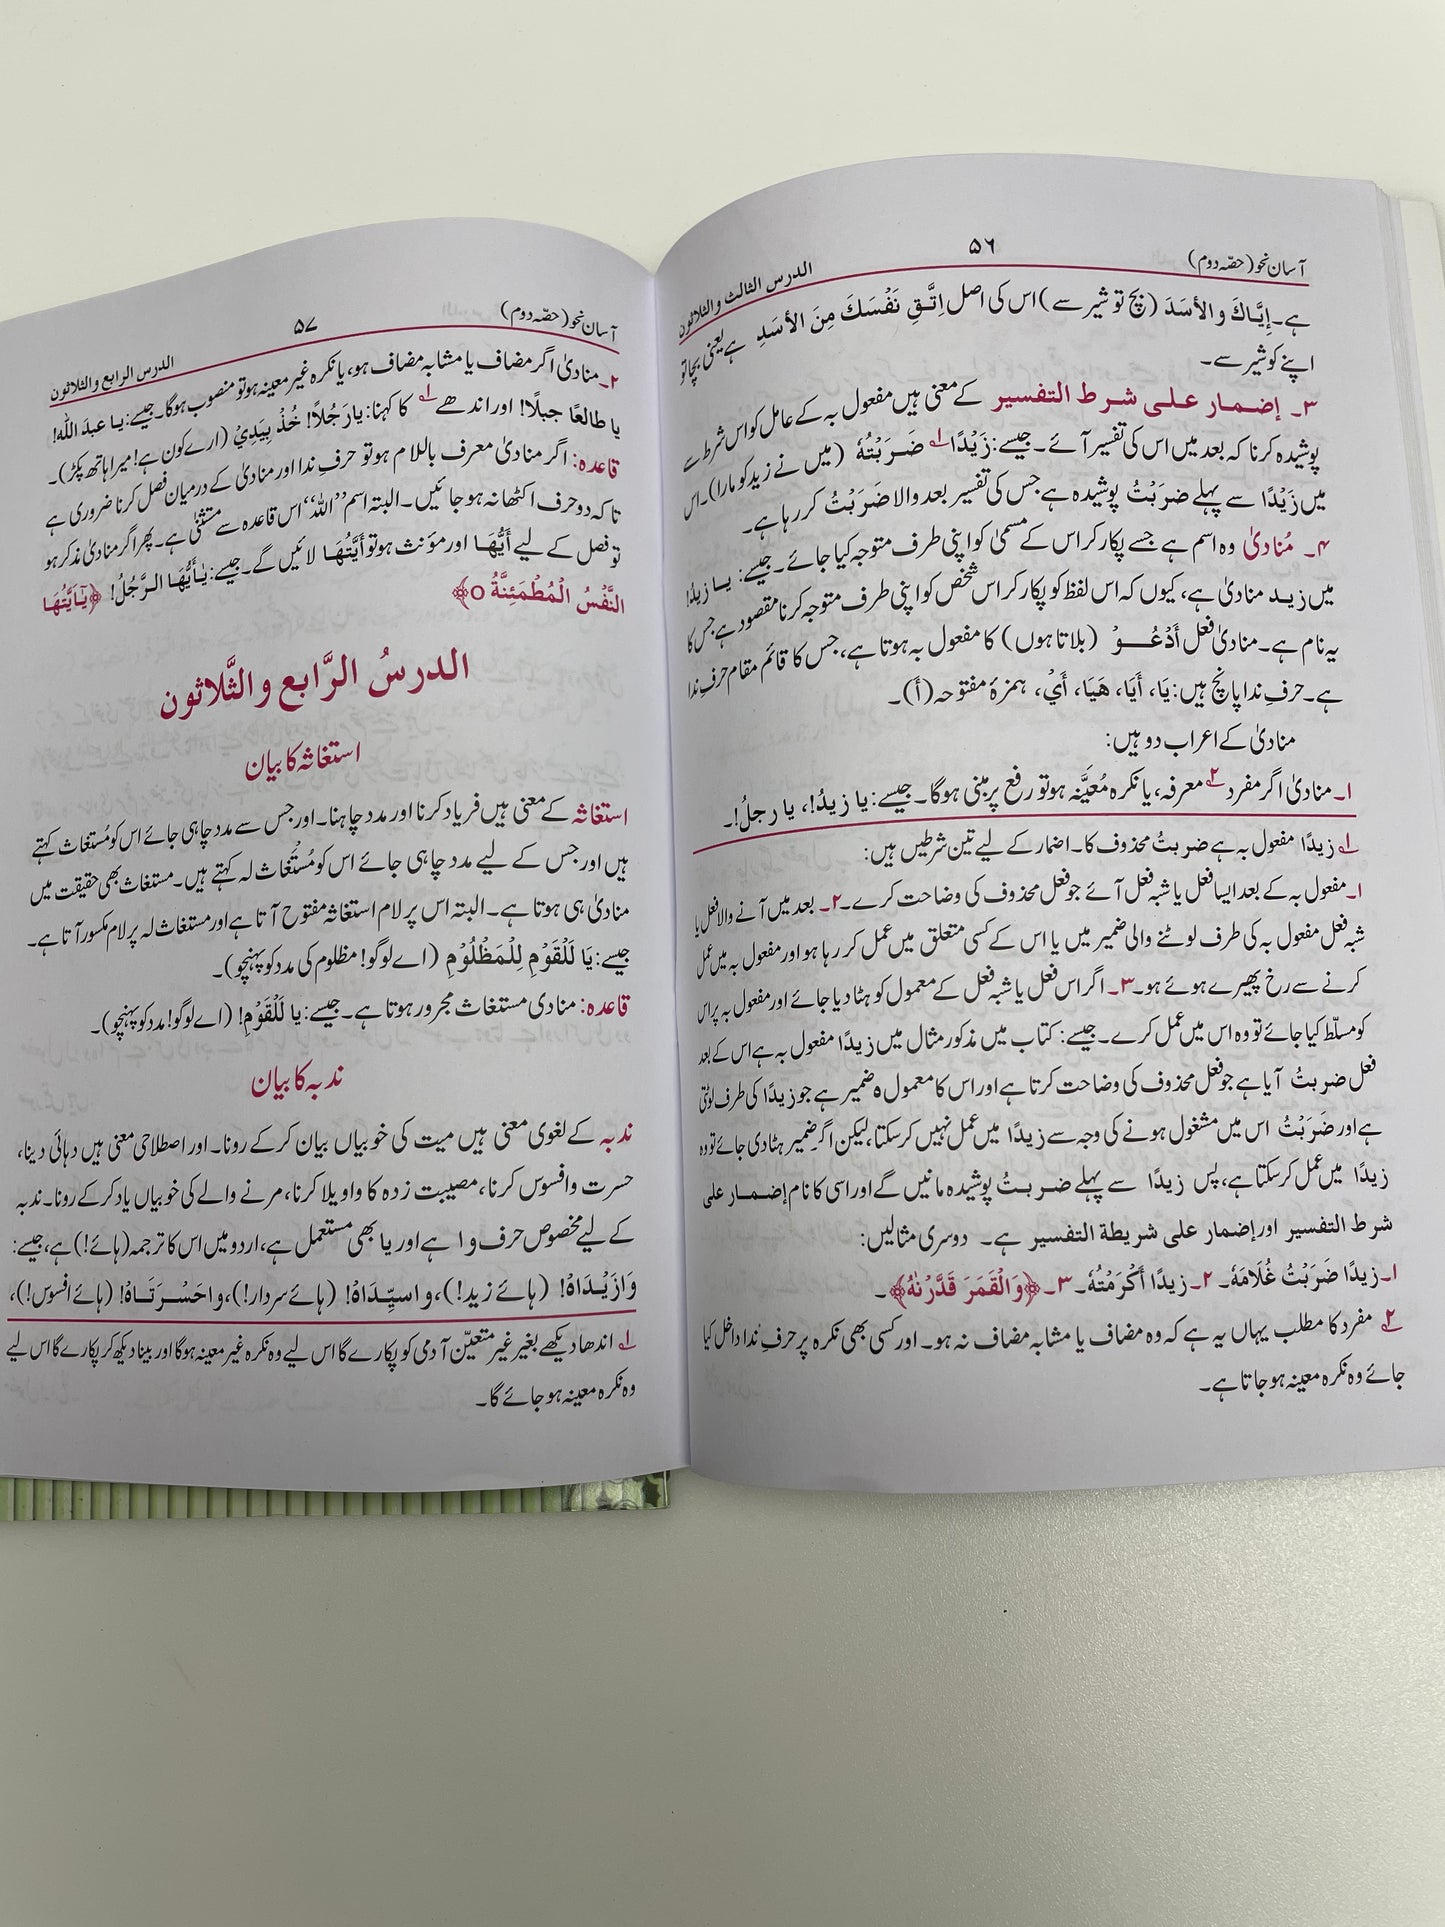 آسان نحو (حصّہ دوم)
۵۶
الدرس الثالث والثلاثون
ہے۔ إِيَّاكَ والأسَدَ (بچ تو شیر سے) اس کی اصل اِتَّقِ نَفْسَكَ مِنَ الأسَدِ ہے یعنی بچا تو
اپنے کو شیر سے۔
۳۔ إضمار على شرط التفسير کے معنی ہیں مفعول بہ کے عامل کو اس شرط سے
پوشیدہ کرنا کہ بعد میں اس کی تفسیر آئے۔ جیسے: زَيْدًا ۱؎ ضَرَبْتُهُ (میں نے زید کو مارا)۔ اس
میں زَيْدًا سے پہلے ضربْتُ پوشیدہ ہے جس کی تفسیر بعد والا ضَرَبْتُ کر رہا ہے۔
۴۔ مُنادیٰ وہ اسم ہے جسے پکار کر اس کے مسمیٰ کو اپنی طرف متوجہ کیا جائے۔ جیسے: يا زيدُ!
میں زید منادیٰ ہے، کیوں کہ اس لفظ کو پکار کر اس شخص کو اپنی طرف متوجہ کرنا مقصود ہے جس کا
یہ نام ہے۔ منادیٰ فعل أَدْعُوْ (بلاتا ہوں) کا مفعول بہ ہوتا ہے، جس کا قائم مقام حرفِ ندا
ہے۔ حرفِ ندا پانچ ہیں: يَا، أَيَا، هَيَا، أَيْ، ہمزۂ مفتوحہ (أَ)۔
منادیٰ کے اعراب دو ہیں:
۱۔ منادیٰ اگر مفرد ۲؎ معرفہ، یا نکرہ مُعَیَّنہ ہو تو رفع پر مبنی ہوگا۔ جیسے: يا زيدُ!، يا رجلُ!۔
۱؎ زيدًا مفعول بہ ہے ضربتُ محذوف کا۔ اضمار کے لیے تین شرطیں ہیں:
۱۔ مفعول بہ کے بعد ایسا فعل یا شبہ فعل آئے جو فعل محذوف کی وضاحت کرے۔ ۲۔ بعد میں آنے والا فعل یا
شبہ فعل مفعول بہ کی طرف لوٹنے والی ضمیر میں یا اس کے کسی متعلق میں عمل کر رہا ہو اور مفعول بہ میں عمل
کرنے سے رخ پھیرے ہوئے ہو۔ ۳۔ اگر اس فعل یا شبہ فعل کے معمول کو ہٹا دیا جائے اور مفعول بہ پر اس
کو مسلّط کیا جائے تو وہ اس میں عمل کرے۔ جیسے: کتاب میں مذکور مثال میں زيدًا مفعول بہ ہے اس کے بعد
فعل ضربتُ آیا ہے جو فعل محذوف کی وضاحت کرتا ہے اور اس کا معمول ہ ضمیر ہے جو زيدًا کی طرف لوٹتی
ہے اور ضَرَبْتُ اس میں مشغول ہونے کی وجہ سے زيدًا میں عمل نہیں کر سکتا، لیکن اگر ضمیر ہٹا دی جائے تو وہ
زيدًا میں عمل کر سکتا ہے، پس زيدًا سے پہلے ضربتُ پوشیدہ مانیں گے اور اسی کا نام إضمار على
شرط التفسير اور إضمار على شريطة التفسير ہے۔ دوسری مثالیں:
۱۔ زيدًا ضَرَبْتُ غُلَامَهُ۔ ۲۔ زيدًا أَكْرَمْتُهُ۔ ۳۔ ﴿وَالْقَمَرَ قَدَّرْنٰهُ﴾۔
۲؎ مفرد کا مطلب یہاں یہ ہے کہ وہ مضاف یا مشابہ مضاف نہ ہو۔ اور کسی بھی نکرہ پر حرفِ ندا داخل کیا
جائے وہ نکرہ معینہ ہو جاتا ہے۔
آسان نحو (حصّہ دوم)
۵۷
الدرس الرابع والثلاثون
۲۔ منادیٰ اگر مضاف یا مشابہ مضاف ہو، یا نکرہ غیر معینہ ہو تو منصوب ہوگا۔ جیسے: يا عبدَ الله!
يا طالعًا جبلًا! اور اندھے ۱؎ کا کہنا: يا رَجُلًا! خُذْ بِيَدِيْ (ارے کون ہے! میرا ہاتھ پکڑ)۔
قاعدہ: اگر منادیٰ معرف باللام ہو تو حرفِ ندا اور منادیٰ کے درمیان فصل کرنا ضروری ہے
تاکہ دو حرف اکٹھا نہ ہو جائیں۔ البتہ اسم ’’اللہ‘‘ اس قاعدہ سے مستثنٰی ہے۔ پھر اگر منادیٰ مذکر ہو
تو فصل کے لیے أَيُّهَا اور مؤنث ہو تو أَيَّتُهَا لائیں گے۔ جیسے: يٰأَيُّهَا الرَّجُلُ! ﴿يٰٓاَيَّتُهَا
النَّفْسُ الْمُطْمَئِنَّةُ ۝﴾
الدرسُ الرَّابع والثَّلاثون
استغاثہ کا بیان
استغاثہ کے معنی ہیں فریاد کرنا اور مدد چاہنا۔ اور جس سے مدد چاہی جائے اس کو مُستغاث کہتے
ہیں اور جس کے لیے مدد چاہی جائے اس کو مُستُغاث لہ کہتے ہیں۔ مستغاث بھی حقیقت میں
منادیٰ ہی ہوتا ہے۔ البتہ اس پر لام استغاثہ مفتوح آتا ہے اور مستغاث لہ پر لام مکسور آتا ہے۔
جیسے: يَا لَلْقَوْمِ لِلْمَظْلُوْمِ (اے لوگو! مظلوم کی مدد کو پہنچو)۔
قاعدہ: منادی مستغاث مجرور ہوتا ہے۔ جیسے: يا لَلْقَوْمِ! (اے لوگو! مدد کو پہنچو)۔
ندبہ کا بیان
ندبہ کے لغوی معنی ہیں میت کی خوبیاں بیان کر کے رونا۔ اور اصطلاحی معنی ہیں دہائی دینا،
حسرت و افسوس کرنا، مصیبت زدہ کا واویلا کرنا، مرنے والے کی خوبیاں یاد کر کے رونا۔ ندبہ
کے لیے مخصوص حرف وا ہے اور یا بھی مستعمل ہے، اردو میں اس کا ترجمہ (ہائے!) ہے، جیسے:
وَازَيْدَاهُ! (ہائے زید!)، واسيِّدَاهُ! (ہائے سردار!)، واحَسْرَتَاهُ! (ہائے افسوس!)،
۱؎ اندھا دیکھے بغیر غیر متعیّن آدمی کو پکارے گا اس لیے وہ نکرہ غیر معینہ ہوگا اور بینا دیکھ کر پکارے گا اس لیے
وہ نکرہ معینہ ہو جائے گا۔